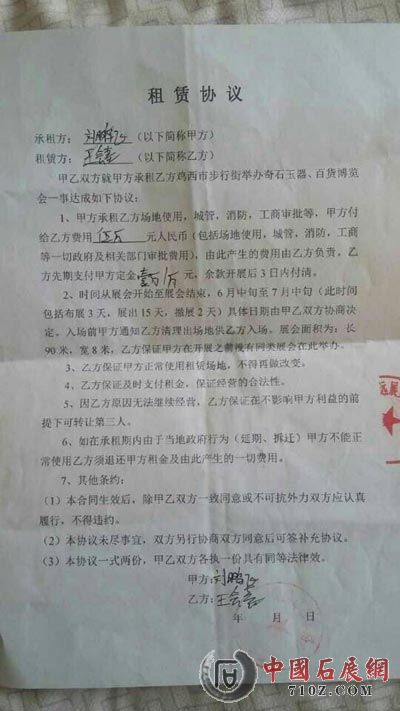 租赁协议
承租方：刘鹏飞（以下简称甲方）
租赁方：王会喜（以下简称乙方）
甲乙双方就甲方承租乙方鸡西市步行街举办奇石玉器、百货博览
会一事达成如下协议：
1、甲方承租乙方场地使用，城管，消防，工商审批等，甲方付
给乙方费用 伍万 元人民币（包括场地使用，城管，消防，工商
等一切政府及相关部门审批费用），由此产生的费用由乙方负责，乙
方先期支付甲方定金 壹万 元，余款开展后3日内付清。
2、时间从展会开始至展会结束，6月中旬至7月中旬（此时间
包括布展3天，展出15天，撤展2天）具体日期由甲乙双方协商决
定。入场前甲方通知乙方清理出场地供乙方入场。展会面积为：长
90米，宽8米，乙方保证甲方在开展之前没有同类展会在此举办。
3、乙方保证甲方正常使用租赁场地，不得再做改变。
4、乙方保证及时支付租金，保证经营的合法性。
5、因乙方原因无法继续经营，乙方保证在不影响甲方利益的前
提下可转让第三人。
6、如在承租期内由于当地政府行为（延期、拆迁）甲方不能正
常使用乙方须退还甲方租金及由此产生的一切费用。
7、其他条约：
（1）本合同生效后，除甲乙双方一致同意或不可抗外力双方应认真
履行，不得违约。
（2）本协议未尽事宜，双方另行协商双方同意后可签补充协议。
（3）本协议一式两份，甲乙双方各执一份具有同等法律效。
甲方：刘鹏飞
乙方：王会喜
年 月 日
中國石展網
71OZ.COM